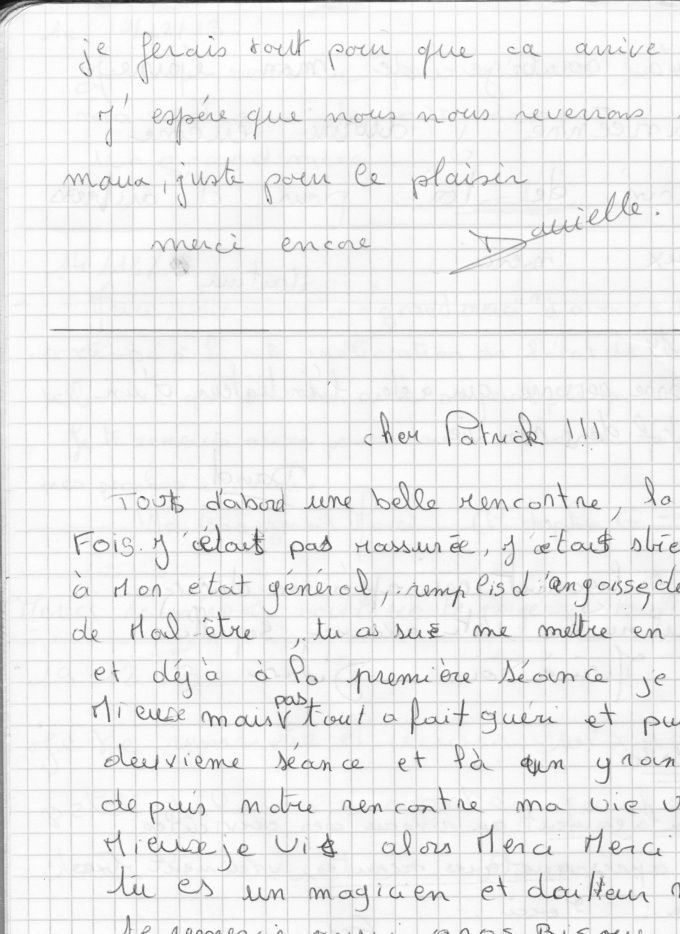 je ferais tout pour que ca arrive
J'espére que nous nous reverrons
maux, juste pour le plaisir
merci encore Danielle.
cher Patrick !!!
Touts d'abord une belle rencontre, la
Fois. J'étais pas rassurée, j'étais
à Mon etat général, remplis d'angoisse, de
de Mal être, tu as sus me mettre en
et déjà à la première séance je
Mieuse mais pas tout a fait guéri et pu
deuxieme séance et là un gran
depuis notre rencontre ma vie v
Mieuse je vis alors Merci Merci
tu es un magicien et dailleur
te remerci